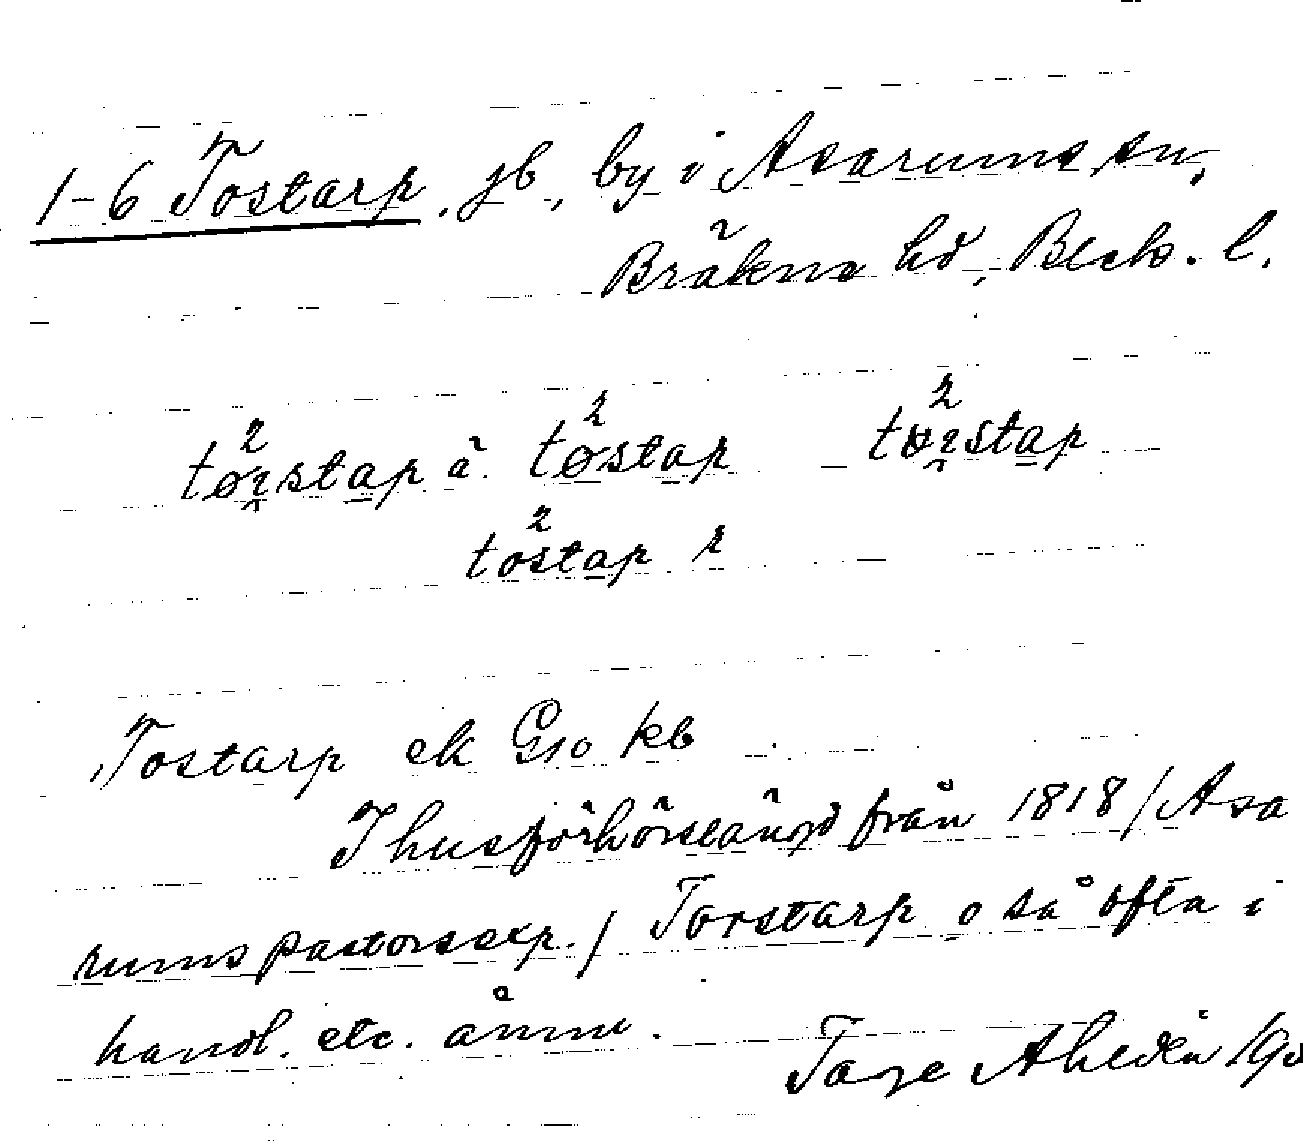 1-6 Tostarp. jb., by i Asarums sn,
Bräkne hd, Blek. l.
tørstap å. tøstap tørstap
tostap r
Tostarp ek G10 kb
I husförhörslängd från 1818 / Asa
rums pastorsexp. / Torstarp o så ofta i
handl. etc. ännu.
Tage Ahldén 190